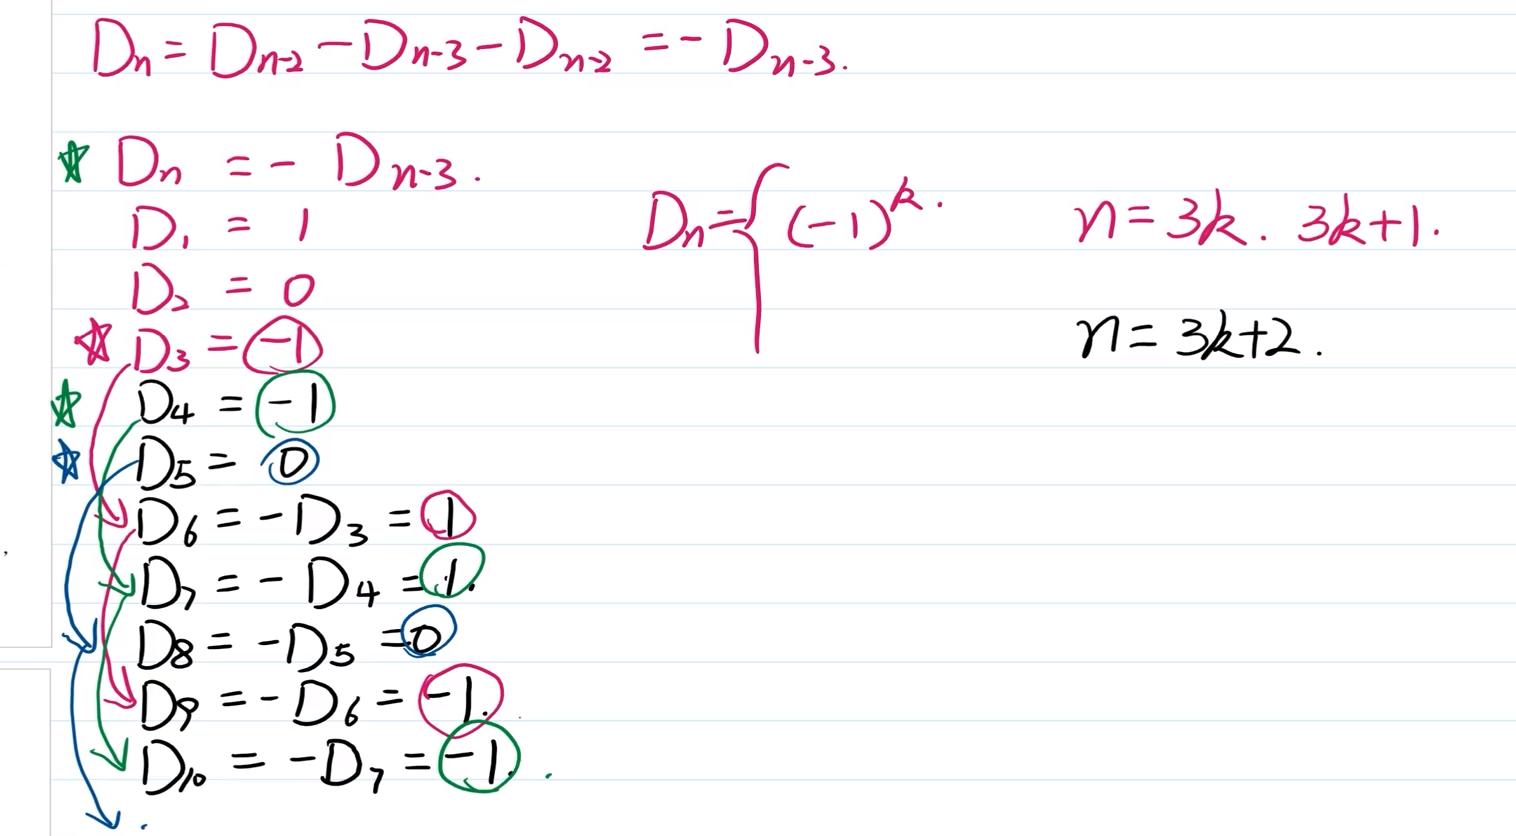 Dn = Dn-2 - Dn-3 - Dn-2 = - Dn-3.
Dn = - Dn-3.
D1 = 1
D2 = 0
D3 = -1
D4 = -1
D5 = 0
D6 = -D3 = 1
D7 = - D4 = 1.
D8 = -D5 = 0
D9 = - D6 = -1.
D10 = -D7 = -1.
Dn = { (-1)^k. n = 3k. 3k+1.
n = 3k+2.